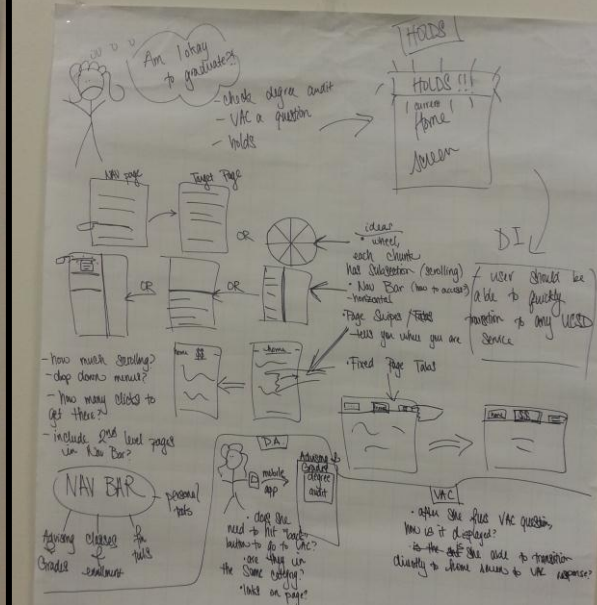 Am I okay
to graduate?!
- check degree audit
- VAC a question
- holds
HOLDS
HOLDS !!!
current
Home
screen
NAV page
Target Page
OR
OR
OR
ideas
• wheel,
each chunk
has subsection (scrolling)
• Nav Bar (how to access?)
- horizontal
• Page Swipes / Tabs
- tells you where you are
• Fixed Page Tabs
DI
- user should be
able to quickly
transition to any UCSD
service
home $$
home
home $$
- how much scrolling?
- drop down menus?
- how many clicks to
get there?
- include 2nd
level pages
in Nav Bar?
NAV BAR
personal
tabs
Advising
&
Grades
classes
&
enrollment
tabs
DA
mobile
app
Advising &
Grades
degree
audit
• does she
need to hit "back"
button to go to VAC?
• are they in
the same category?
• links on page?
VAC
• after she fires VAC question,
how is it displayed?
• is the she able to transition
directly to home screen to VAC response?